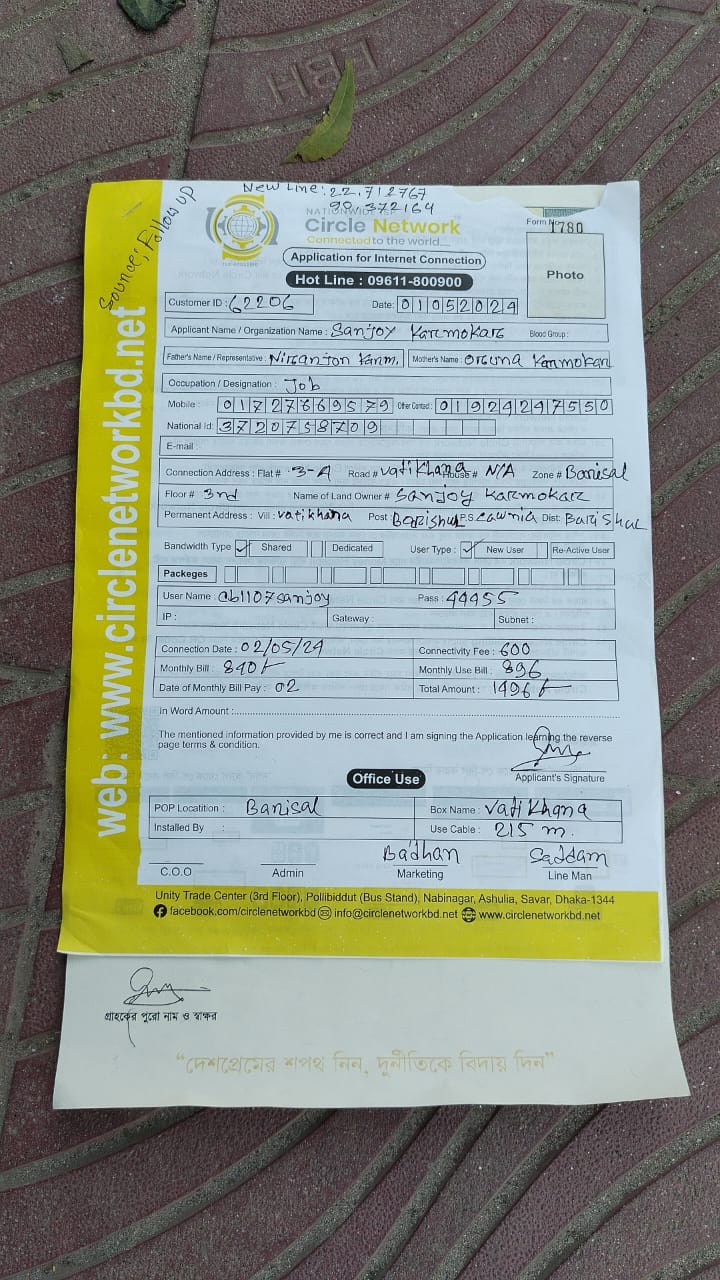 EBH
New Line: 22.712767
90.372164
Source; Follow up
NATIONWIDE ISP
Circle Network
Connected to the world....
Form No 1780
Application for Internet Connection
Hot Line : 09611-800900
Photo
Customer ID : 62206 Date: 01052024
Applicant Name / Organization Name : Sanjoy Karmokar Blood Group :
Father's Name / Representative : Niranjon Karm. Mother's Name : Orcuna Karmokar
Occupation / Designation : Job
Mobile : 01727669579 Other Contact : 01924247550
National Id: 3720758709
E-mail :
Connection Address : Flat # 3-A Road # Vatikhana House # N/A Zone # Barisal
Floor # 3rd Name of Land Owner # Sanjoy Karmokar
Permanent Address : Vill : Vatikhana Post : Barishal P.S Cawnia Dist: Barishal
Bandwidth Type ✓ Shared Dedicated User Type : ✓ New User Re-Active User
Packeges
User Name : cb1107sanjoy Pass : 44455
IP : Gateway : Subnet :
Connection Date : 02/05/24 Connectivity Fee : 600
Monthly Bill : 840/- Monthly Use Bill : 896
Date of Monthly Bill Pay : 02 Total Amount : 1496/-
In Word Amount :
The mentioned information provided by me is correct and I am signing the Application learning the reverse
page terms & condition.
Applicant's Signature
Office Use
POP Locatition : Barisal Box Name : Vati Khana
Installed By : Use Cable : 215 m.
Badhan Saddam
C.O.O Admin Marketing Line Man
Unity Trade Center (3rd Floor), Pollibiddut (Bus Stand), Nabinagar, Ashulia, Savar, Dhaka-1344
facebook.com/circlenetworkbd info@circlenetworkbd.net www.circlenetworkbd.net
web: www.circlenetworkbd.net
গ্রাহকের পুরো নাম ও স্বাক্ষর
“দেশপ্রেমের শপথ নিন, দুর্নীতিকে বিদায় দিন”